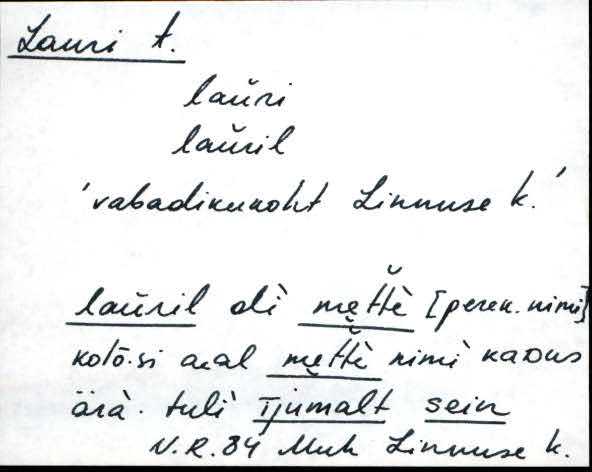 Lauri t.
laŭri
laŭril
'vabadikukoht Linnuse k.'
laŭril olì mętt̆è [perek. nimi]
kolō·si aᴈal mętt̆è nimì kaᴅus
ärà· tulì ījumalt sein
V.R.84 Muh Linnuse k.